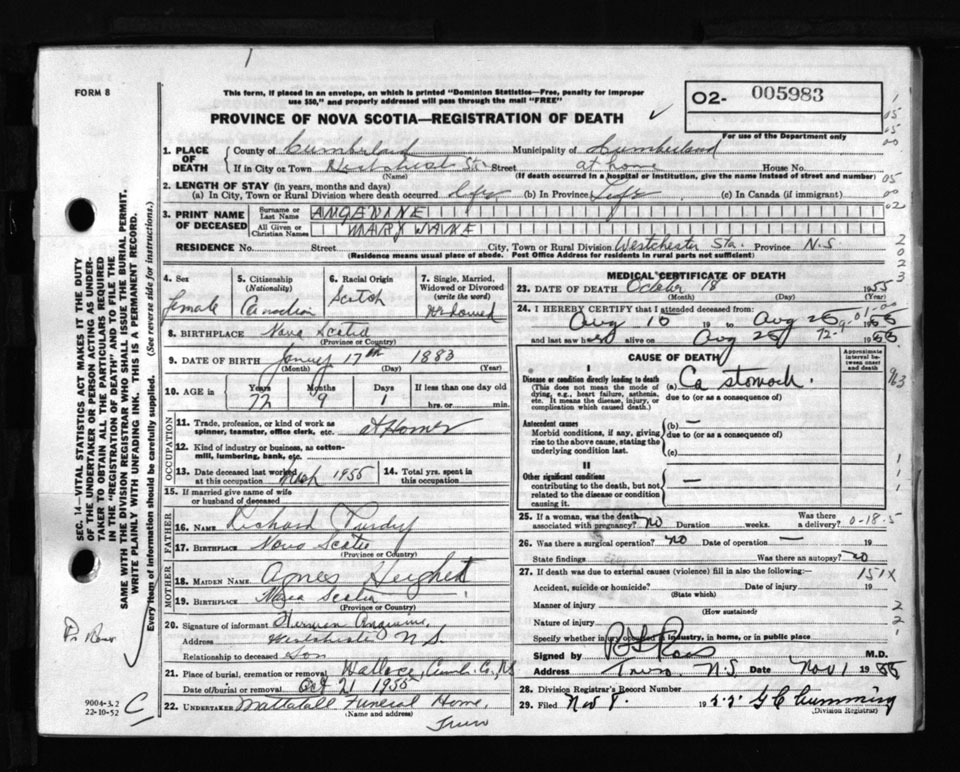 FORM 8
This form, if placed in an envelope, on which is printed "Dominion Statistics—Free, penalty for improper
use $50," and properly addressed will pass through the mail "FREE"
O2- 005983
For use of the Department only
PROVINCE OF NOVA SCOTIA—REGISTRATION OF DEATH
1. PLACE OF DEATH County of Cumberland Municipality of Cumberland
If in City or Town Westchester Sta. Street at home House No.
(Name) (If death occurred in a hospital or institution, give the name instead of street and number)
2. LENGTH OF STAY (in years, months and days)
(a) In City, Town or Rural Division where death occurred Life (b) In Province Life (c) In Canada (if immigrant)
3. PRINT NAME OF DECEASED Surname or Last Name ANGEVINE
All Given or Christian Names MARY JANE
RESIDENCE No. Street City, Town or Rural Division Westchester Sta. Province N.S
(Residence means usual place of abode. Post Office Address for residents in rural parts not sufficient)
4. Sex female
5. Citizenship (Nationality) Canadian
6. Racial Origin Scotch
7. Single, Married, Widowed or Divorced (write the word) Widowed
8. BIRTHPLACE Nova Scotia
(Province or Country)
9. DATE OF BIRTH 17th 1883
(Month) (Day) (Year)
10. AGE in Years 72 Months 9 Days 1 If less than one day old hrs. or min.
OCCUPATION
11. Trade, profession, or kind of work as spinner, teamster, office clerk, etc. At Home
12. Kind of industry or business, as cotton-mill, lumbering, bank, etc.
13. Date deceased last worked at this occupation 1955 14. Total yrs. spent in this occupation
15. If married give name of wife or husband of deceased
FATHER
16. NAME Richard Purdy
17. BIRTHPLACE Nova Scotia
(Province or Country)
MOTHER
18. MAIDEN NAME Agnes
19. BIRTHPLACE Nova Scotia
(Province or Country)
20. Signature of informant Angevine
Address Westchester N.S.
Relationship to deceased Son
21. Place of burial, cremation or removal Wallace, Cumb. Co., NS
Date of burial or removal Oct 21 1955
22. UNDERTAKER Mattatall Funeral Home,
(Name and address) Truro
MEDICAL CERTIFICATE OF DEATH
23. DATE OF DEATH October 18 1955
(Month) (Day) (Year)
24. I HEREBY CERTIFY that I attended deceased from:
Aug 10 19 to Aug 26 1955
and last saw her alive on Aug 26 1955
72-9-01-00
CAUSE OF DEATH
Approximate interval between onset and death
I
Disease or condition directly leading to death
(This does not mean the mode of dying, e.g., heart failure, asthenia, etc. It means the disease, injury, or complication which caused death.)
(a) Ca stomach.
due to (or as a consequence of)
Antecedent causes
Morbid conditions, if any, giving rise to the above cause, stating the underlying condition last.
(b) —
due to (or as a consequence of)
(c)
II
Other significant conditions
contributing to the death, but not related to the disease or condition causing it.
—
25. If a woman, was the death associated with pregnancy? no Duration weeks. Was there a delivery? 0-18-5
26. Was there a surgical operation? no Date of operation — 19
State findings Was there an autopsy? no
27. If death was due to external causes (violence) fill in also the following:—
151X
Accident, suicide or homicide? Date of injury 19
(State which)
Manner of injury
(How sustained)
Nature of injury
Specify whether injury occurred in industry, in home, or in public place
Signed by M.D.
Address Truro N.S. Date Nov 1 1955
28. Division Registrar's Record Number
29. Filed Nov 8. 1955 G C Cumming
(Division Registrar)
SEC. 14—VITAL STATISTICS ACT MAKES IT THE DUTY
OF THE UNDERTAKER OR PERSON ACTING AS UNDER-
TAKER TO OBTAIN ALL THE PARTICULARS REQUIRED
IN THE "REGISTRATION OF DEATH" AND TO FILE THE
SAME WITH THE DIVISION REGISTRAR WHO SHALL ISSUE THE BURIAL PERMIT.
WRITE PLAINLY WITH UNFADING INK. THIS IS A PERMANENT RECORD.
Every item of information should be carefully supplied. (See reverse side for instructions.)
9004-3.2
22-10-52
C
1
05
05
00
05
00
02
2
0
2
3
963
1
1
1
2
2